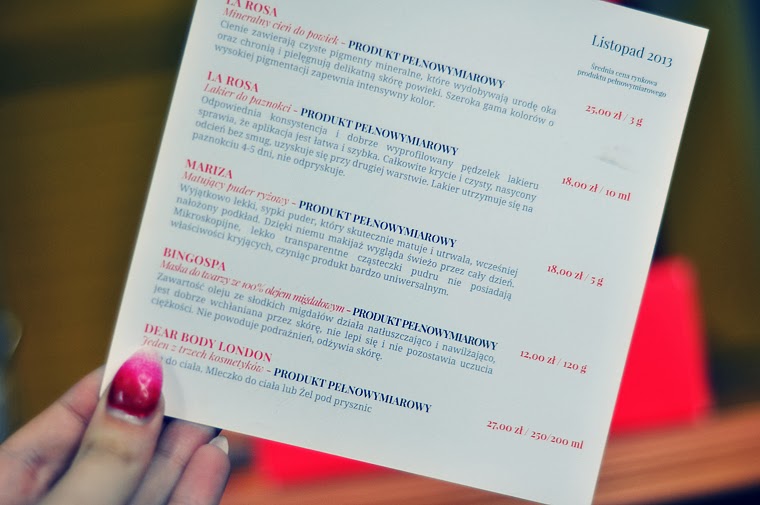 Listopad 2013
Średnia cena rynkowa
produktu pełnowymiarowego
LA ROSA
Mineralny cień do powiek - PRODUKT PEŁNOWYMIAROWY
Cienie zawierają czyste pigmenty mineralne, które wydobywają urodę oka
oraz chronią i pielęgnują delikatną skórę powieki. Szeroka gama kolorów o
wysokiej pigmentacji zapewnia intensywny kolor.
25,00 zł / 3 g
LA ROSA
Lakier do paznokci - PRODUKT PEŁNOWYMIAROWY
Odpowiednia konsystencja i dobrze wyprofilowany pędzelek lakieru
sprawia, że aplikacja jest łatwa i szybka. Całkowite krycie i czysty, nasycony
odcień bez smug, uzyskuje się przy drugiej warstwie. Lakier utrzymuje się na
paznokciu 4-5 dni, nie odpryskuje.
18,00 zł / 10 ml
MARIZA
Matujący puder ryżowy - PRODUKT PEŁNOWYMIAROWY
Wyjątkowo lekki, sypki puder, który skutecznie matuje i utrwala, wcześniej
nałożony podkład. Dzięki niemu makijaż wygląda świeżo przez cały dzień.
Mikroskopijne, lekko transparentne cząsteczki pudru nie posiadają
właściwości kryjących, czyniąc produkt bardzo uniwersalnym.
18,00 zł / 5 g
BINGOSPA
Maska do twarzy ze 100% olejem migdałowym - PRODUKT PEŁNOWYMIAROWY
Zawartość oleju ze słodkich migdałów działa natłuszczająco i nawilżająco,
jest dobrze wchłaniana przez skórę, nie lepi się i nie pozostawia uczucia
ciężkości. Nie powoduje podrażnień, odżywia skórę.
12,00 zł / 120 g
DEAR BODY LONDON
Jeden z trzech kosmetyków - PRODUKT PEŁNOWYMIAROWY
do ciała, Mleczko do ciała lub Żel pod prysznic
27,00 zł / 250/200 ml